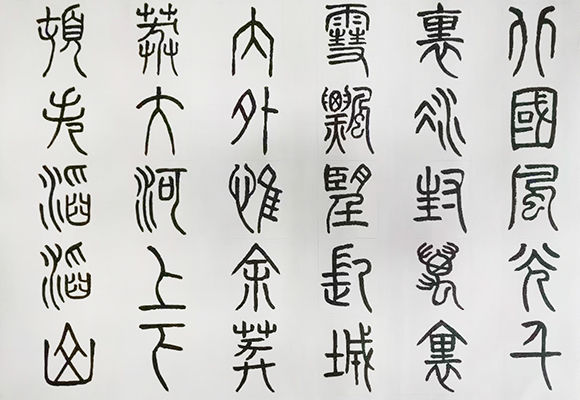 北國風光千
裏冰封萬裏
雪飄望長城
內外惟余莽
莽大河上下
頓失滔滔山